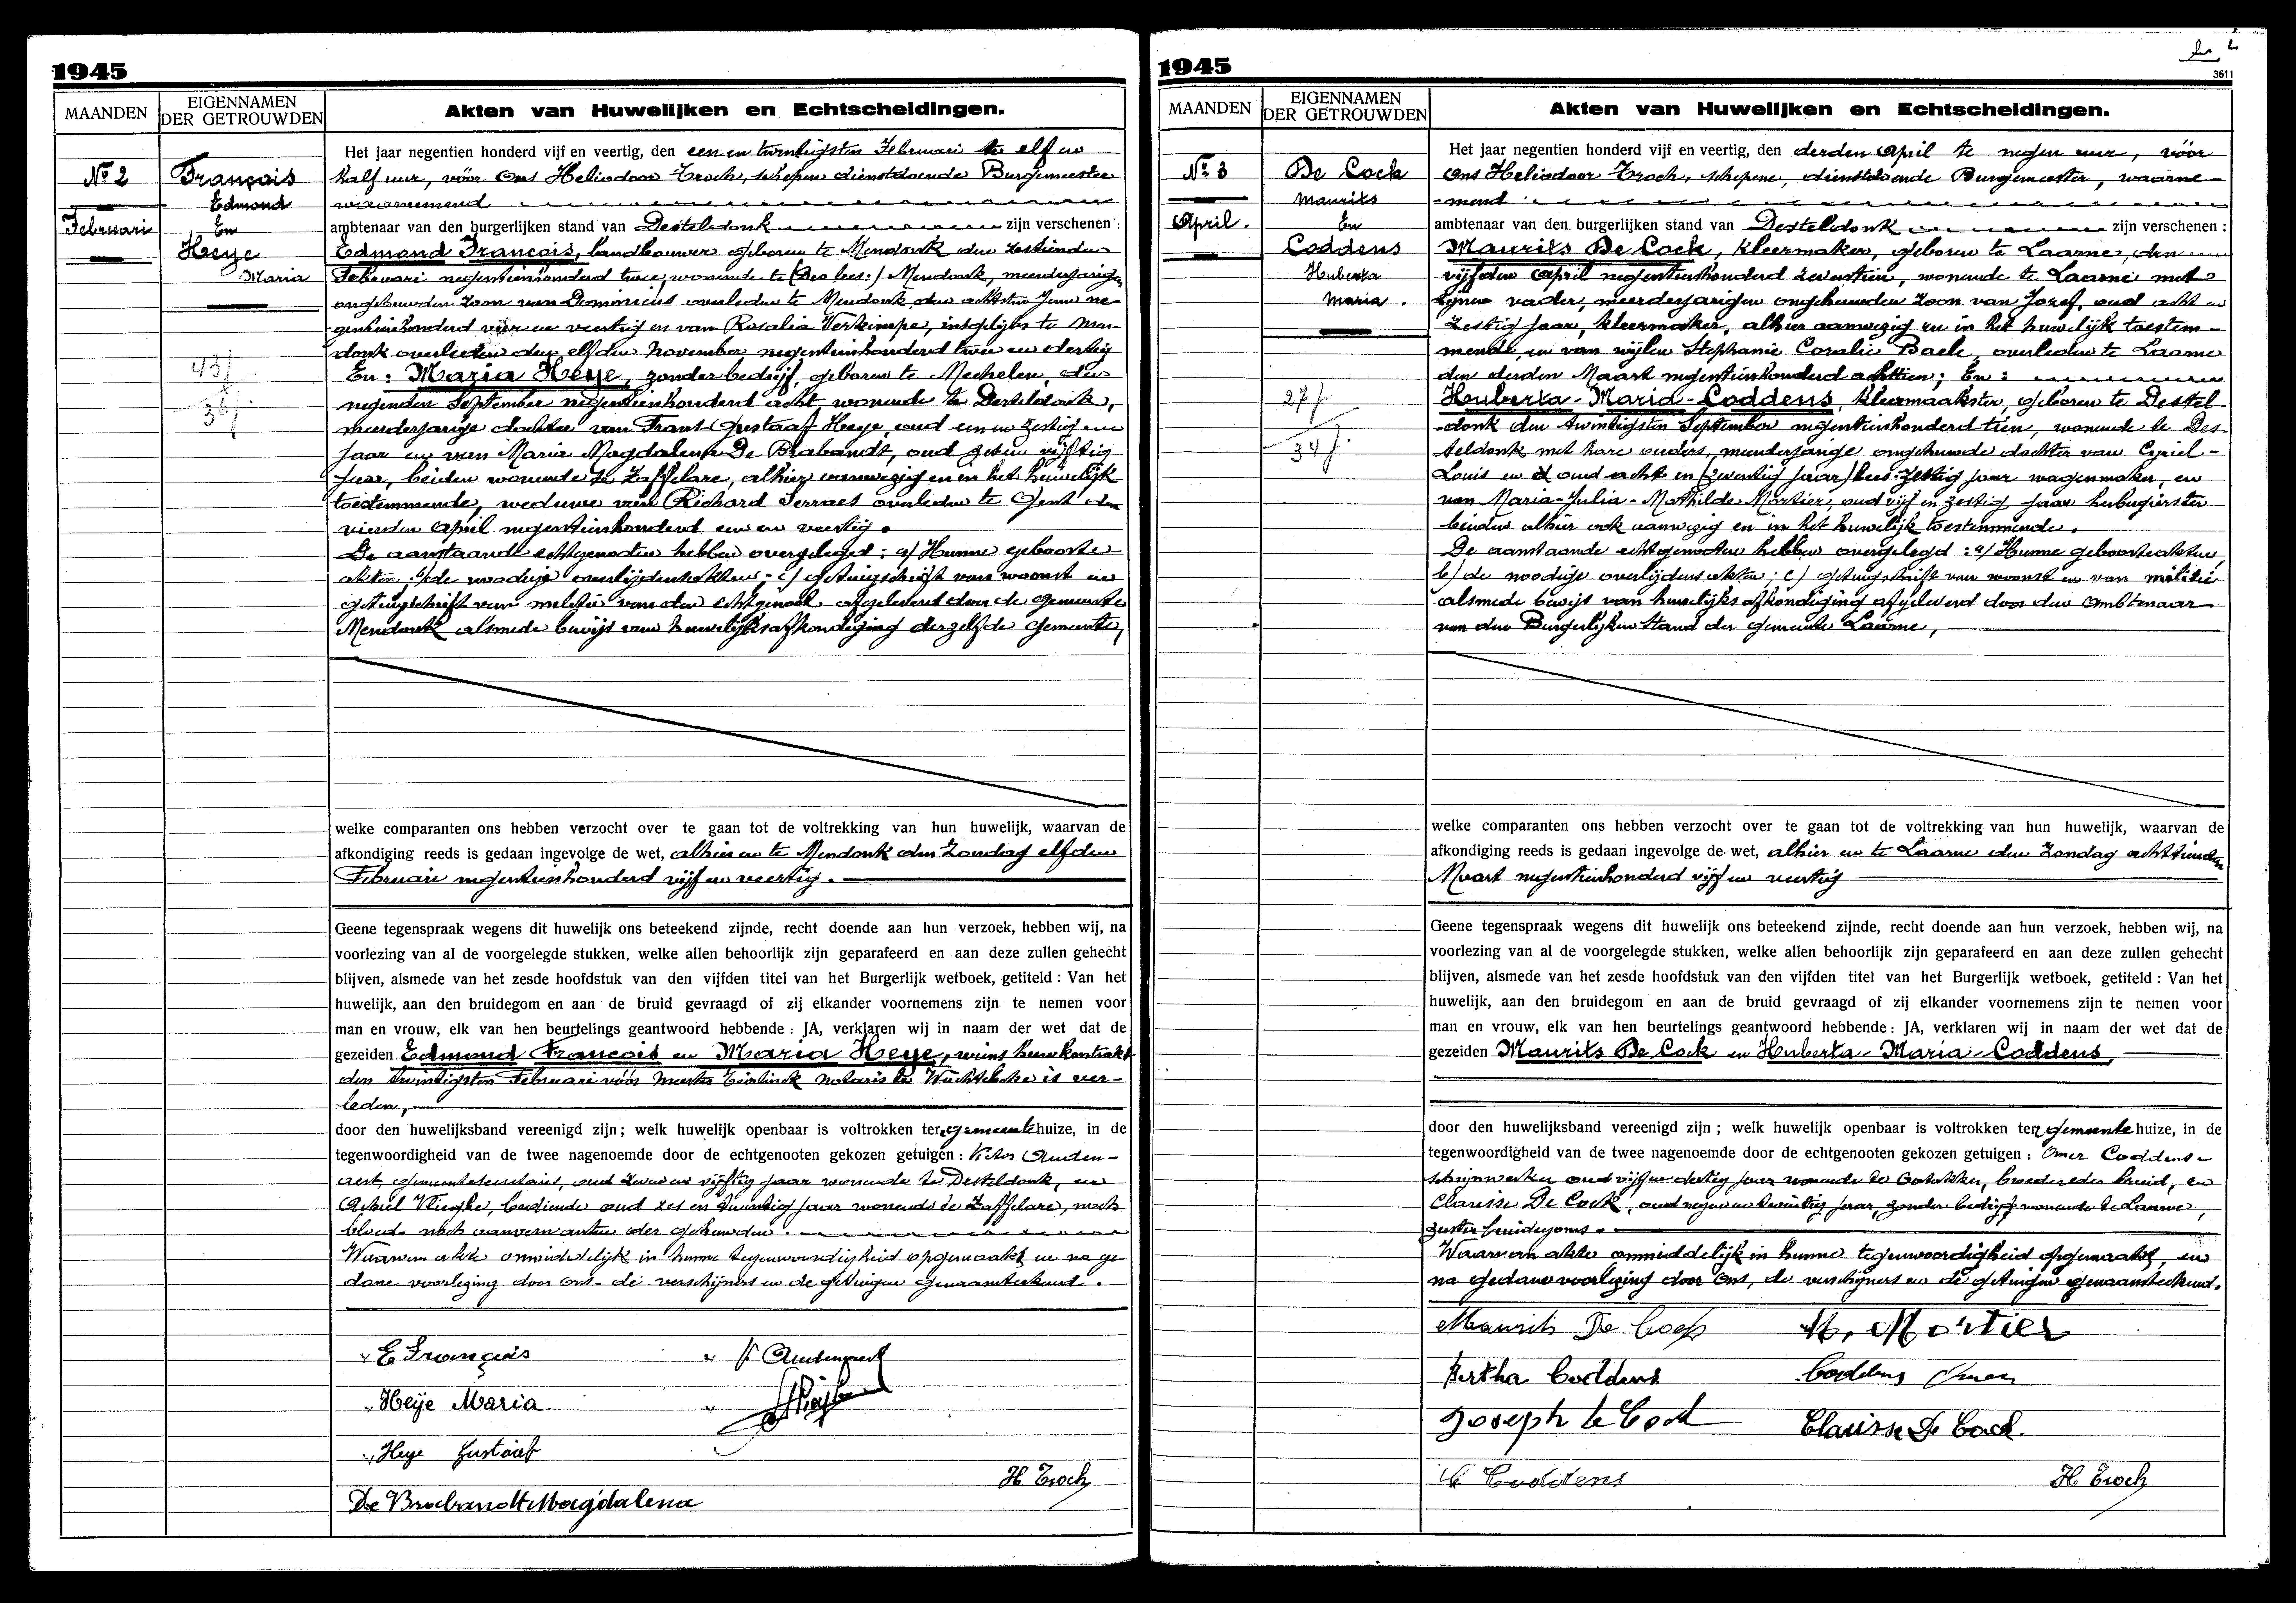 1945
MAANDEN
EIGENNAMEN
DER GETROUWDEN
Akten van Huwelijken en Echtscheidingen.
No 2
Februari
François
Edmond
En
Heye
Maria
43 j
36 j
Het jaar negentien honderd vijf en veertig, den een en twintigsten Februari te elf en
half uur, vóór Ons Heliodoor Troch, schepen dienstdoende Burgemeester
waarnemend
ambtenaar van den burgerlijken stand van Desteldonk zijn verschenen :
Edmond François, landbouwer geboren te Mendonk den zestienden
Februari negentienhonderd twee, wonende te (Des lees:) Mendonk, meerderjarigen
ongehuwden zoon van Dominicus overleden te Mendonk den achtsten Juni ne-
gentienhonderd vier en veertig en van Rosalia Verkimpe, insgelijks te Men-
donk overleden den elfden November negentienhonderd twee en dertig
En: Maria Heye, zonder bedrijf, geboren te Mechelen, den
negenden September negentienhonderd acht wonende te Desteldonk,
meerderjarige dochter van Frans-Gustaaf Heye, oud een en zestig
jaar en van Maria Magdalena De Brabandt, oud zeven vijftig
jaar, beiden wonende te Zaffelare, alhier aanwezig en in het huwelijk
toestemmende, weduwe van Richard Serraes overleden te Gent den
vierden April negentienhonderd een en veertig.
De aanstaande echtgenooten hebben overgelegd: a/ Hunne geboorte-
akten; b/ de noodige overlijdensakten; c/ getuigschrift van woonst en
getuigschrift van militie van den echtgenoot afgeleverd door de gemeente
Mendonk alsmede bewijs van huwelijksafkondiging derzelfde gemeente,
welke comparanten ons hebben verzocht over te gaan tot de voltrekking van hun huwelijk, waarvan de
afkondiging reeds is gedaan ingevolge de wet, alhier en te Mendonk den Zondag elfden
Februari negentienhonderd vijf en veertig.
Geene tegenspraak wegens dit huwelijk ons beteekend zijnde, recht doende aan hun verzoek, hebben wij, na
voorlezing van al de voorgelegde stukken, welke allen behoorlijk zijn geparafeerd en aan deze zullen gehecht
blijven, alsmede van het zesde hoofdstuk van den vijfden titel van het Burgerlijk wetboek, getiteld : Van het
huwelijk, aan den bruidegom en aan de bruid gevraagd of zij elkander voornemens zijn te nemen voor
man en vrouw, elk van hen beurtelings geantwoord hebbende : JA, verklaren wij in naam der wet dat de
gezeiden Edmond François en Maria Heye, wiens huwkontrakt
den twintigsten Februari vóór meester notaris te Wachtebeke is ver-
leden,
door den huwelijksband vereenigd zijn ; welk huwelijk openbaar is voltrokken ter gemeentehuize, in de
tegenwoordigheid van de twee nagenoemde door de echtgenooten gekozen getuigen : Victor Auden-
aert, gemeentesecretaris, oud zeven en vijftig jaar wonende te Desteldonk, en
Achiel Vlieghe, bediende oud zes en twintig jaar wonende te Zaffelare, noch
bloed- noch aanverwanten der gehuwden.
Waarvan akte onmiddelijk in hunne tegenwoordigheid opgemaakt en na ge-
dane voorlezing door Ons- de verschijners en de getuigen genaamteekend.
E François
Heÿe Maria
Heye Gustaaf
De Brabandt Magdalena
V Audenaert
H. Troch
1945
2
3611
MAANDEN
EIGENNAMEN
DER GETROUWDEN
Akten van Huwelijken en Echtscheidingen.
No 3
April.
De Cock
Maurits
En
Coddens
Huberta
Maria.
27 j.
34 j.
Het jaar negentien honderd vijf en veertig, den derden April te negen uur, vóór
Ons Heliodoor Troch, schepene, dienstdoende Burgemeester, waarne-
mend
ambtenaar van den burgerlijken stand van Desteldonk zijn verschenen :
Maurits De Cock, kleermaker, geboren te Laarne, den
vijfden April negentienhonderd zeventien, wonende te Laarne met
zijnen vader, meerderjarigen ongehuwden zoon van Jozef, oud acht en
zestig jaar, kleermaker, alhier aanwezig en in het huwelijk toestem-
mende, en van wijlen Stephanie Coralie Baele, overleden te Laarne
den derden Maart negentienhonderd achttien; En:
Huberta-Maria-Coddens, kleermaakster, geboren te Destel-
donk den twintigsten September negentienhonderd tien, wonende te Des-
teldonk met hare ouders, meerderjarige ongehuwde dochter van Cyriel-
Louis en oud acht en (zeventig jaar) lees: zestig jaar wagenmaker, en
van Maria-Julia-Mathilde Mortier, oud vijf en zestig jaar herbergierster
beiden alhier ook aanwezig en in het huwelijk toestemmende.
De aanstaande echtgenooten hebben overgelegd: a/ Hunne geboorteakten,
b/ de noodige overlijdensakten; c/ getuigschrift van woonst en van militie
alsmede bewijs van huwelijksafkondiging afgeleverd door den Ambtenaar
van den Burgerlijken Stand der gemeente Laarne,
welke comparanten ons hebben verzocht over te gaan tot de voltrekking van hun huwelijk, waarvan de
afkondiging reeds is gedaan ingevolge de wet, alhier en te Laarne den Zondag achttienden
Maart negentienhonderd vijf en veertig
Geene tegenspraak wegens dit huwelijk ons beteekend zijnde, recht doende aan hun verzoek, hebben wij, na
voorlezing van al de voorgelegde stukken, welke allen behoorlijk zijn geparafeerd en aan deze zullen gehecht
blijven, alsmede van het zesde hoofdstuk van den vijfden titel van het Burgerlijk wetboek, getiteld : Van het
huwelijk, aan den bruidegom en aan de bruid gevraagd of zij elkander voornemens zijn te nemen voor
man en vrouw, elk van hen beurtelings geantwoord hebbende : JA, verklaren wij in naam der wet dat de
gezeiden Maurits De Cock en Huberta-Maria-Coddens,
door den huwelijksband vereenigd zijn ; welk huwelijk openbaar is voltrokken ten gemeentehuize, in de
tegenwoordigheid van de twee nagenoemde door de echtgenooten gekozen getuigen : Omer Coddens
schrijnwerker oud vijf en dertig jaar wonende te Oostakker, broeder der bruid, en
Clarisse De Cock, oud negen en twintig jaar, zonder bedrijf wonende te Laarne,
zuster bruidegoms.
Waarvan akte onmiddelijk in hunne tegenwoordigheid opgemaakt, en
na gedane voorlezing door Ons, de verschijners en de getuigen genaamteekend.
Maurits De Cock
M. Mortier
Bertha Coddens
Coddens Omer
Joseph de Cock
Clarisse De Cock.
C Coddens
H Troch